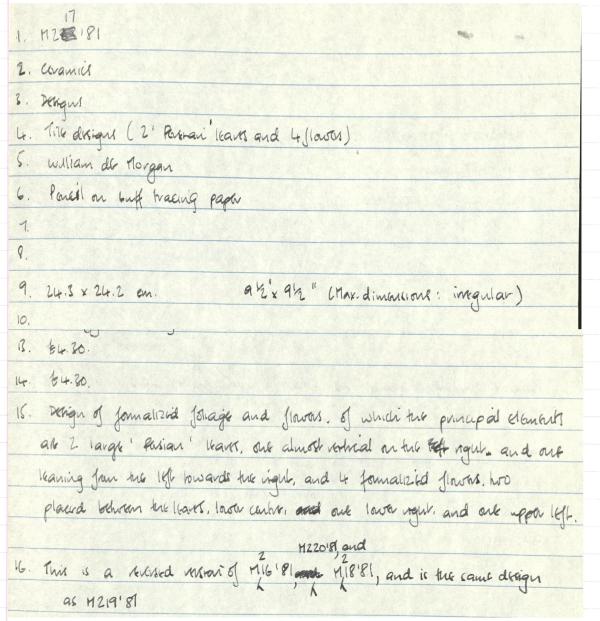 17
1. M2 '81
2. Ceramics
3. Designs
4. Tile designs (2 'Persian' leaves and 4 flowers)
5. William de Morgan
6. Pencil on buff tracing paper
7.
8.
9. 24.3 x 24.2 cm. 9½" x 9½" (Max. dimensions: irregular)
10.
13. £4.30.
14. £4.30.
15. Design of formalized foliage and flowers, of which the principal elements
are 2 large 'Persian' leaves, one almost vertical on the left right, and one
leaning from the left towards the right, and 4 formalized flowers, two
placed between the leaves, lower centre, and one lower right, and one upper left.
M220'81, and
16. This is a revised version of M216'81, and M218'81, and is the same design
as M219'81